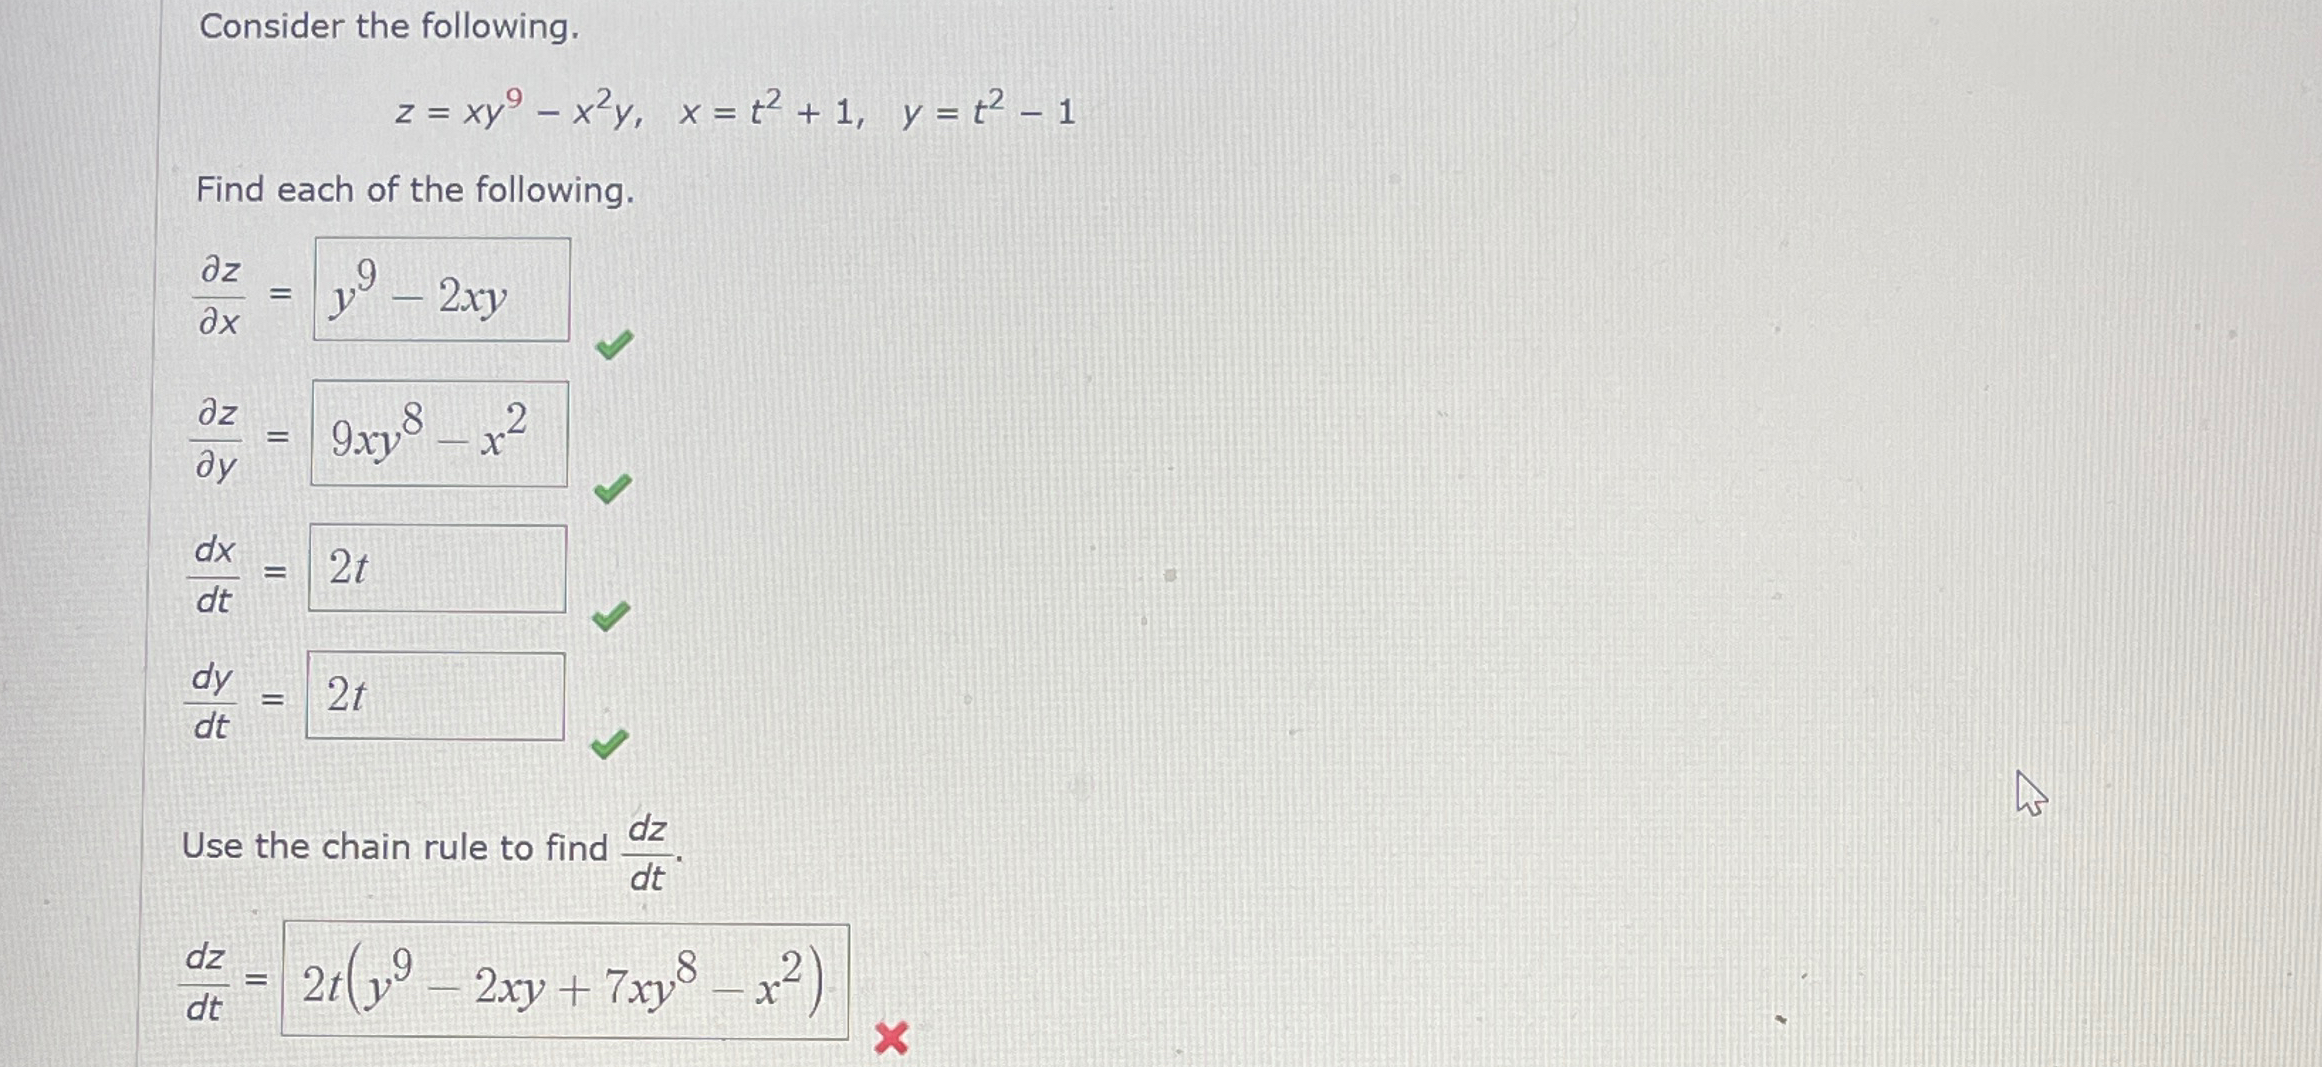 Consider the following.
z = xy⁹ − x²y, x = t² + 1, y = t² − 1
Find each of the following.
∂z/∂x = y⁹ − 2xy
∂z/∂y = 9xy⁸ − x²
dx/dt = 2t
dy/dt = 2t
Use the chain rule to find dz/dt.
dz/dt = 2t(y⁹ − 2xy + 7xy⁸ − x²)